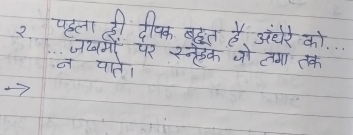 २. पहला ही दीपक बहुत है अंधेरे को...
... जख्मों पर स्नेहक जो लगा तक
न पाते।
→